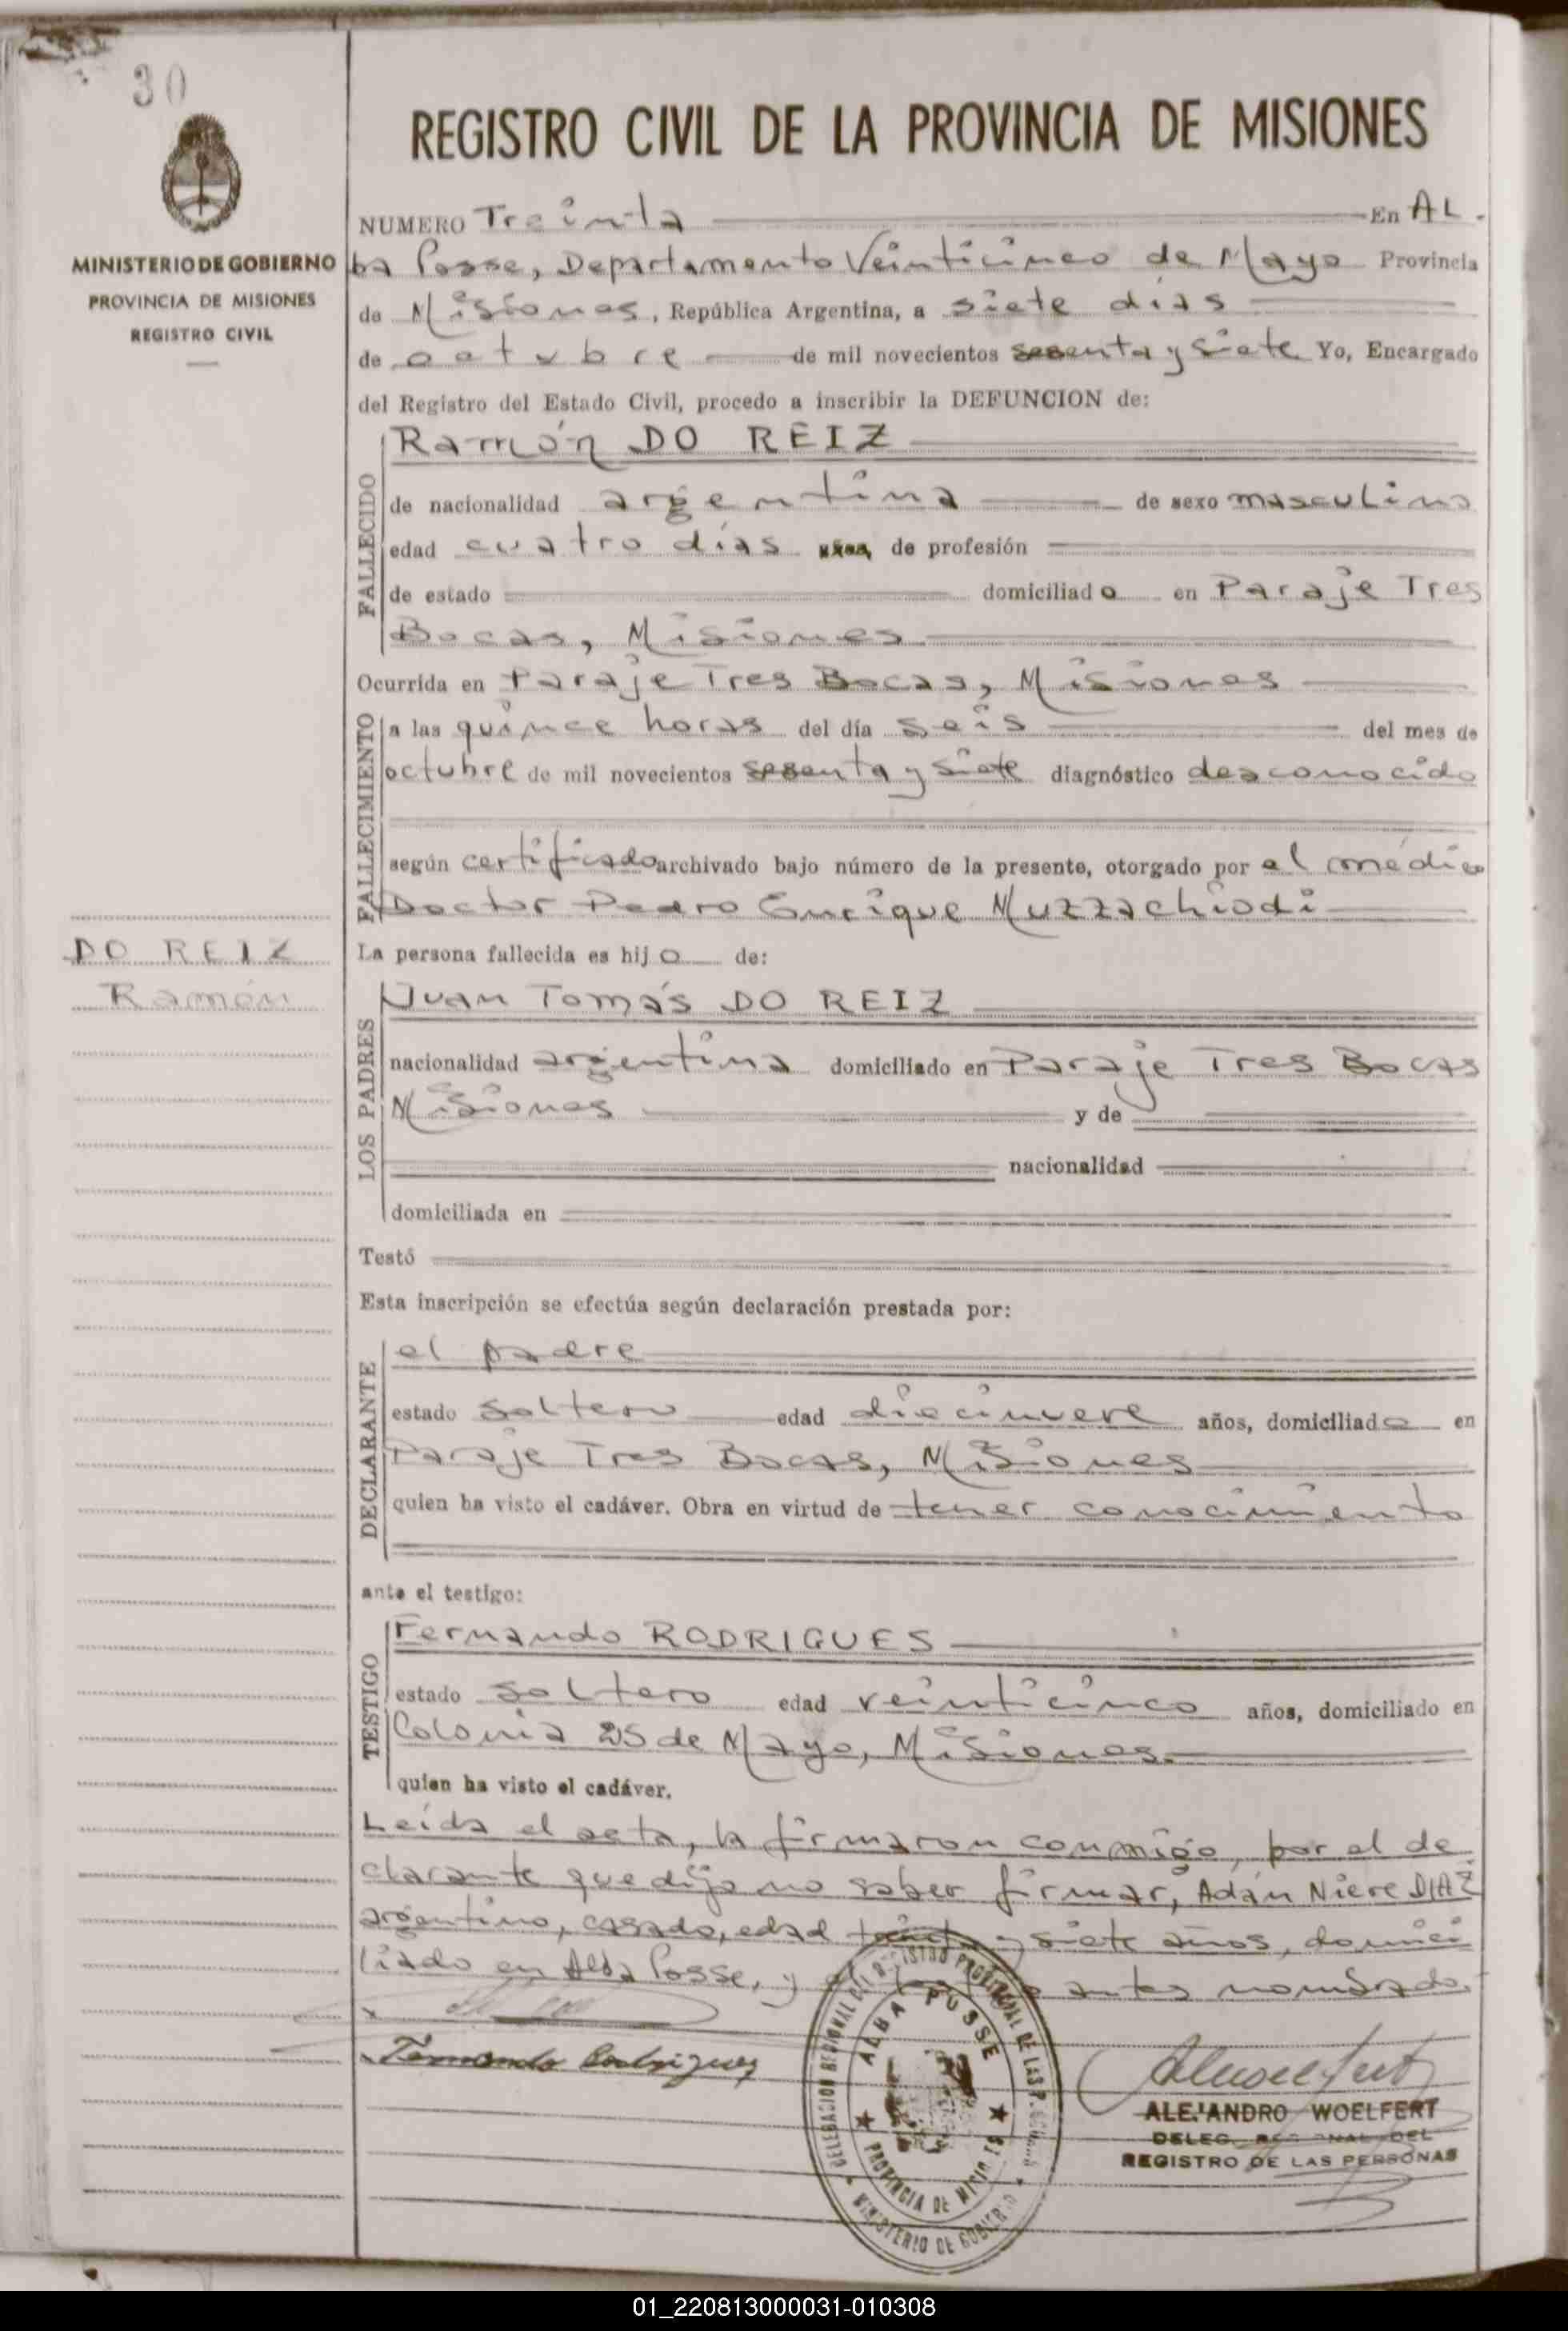 30
MINISTERIO DE GOBIERNO
PROVINCIA DE MISIONES
REGISTRO CIVIL
DO REIZ
Ramón
REGISTRO CIVIL DE LA PROVINCIA DE MISIONES
NUMERO Treinta En AL
ba Posse, Departamento Veinticinco de Mayo Provincia
de Misiones, República Argentina, a siete días
de octubre de mil novecientos sesenta y siete Yo, Encargado
del Registro del Estado Civil, procedo a inscribir la DEFUNCION de:
FALLECIDO
Ramón DO REIZ
de nacionalidad argentina de sexo masculino
edad cuatro días de profesión
de estado domiciliado en Paraje Tres
Bocas, Misiones
Ocurrida en Paraje Tres Bocas, Misiones
FALLECIMIENTO
a las quince horas del día seis del mes de
octubre de mil novecientos sesenta y siete diagnóstico desconocido
según certificado archivado bajo número de la presente, otorgado por el médico
Doctor Pedro Enrique Muzzachiodi
La persona fallecida es hijo de:
LOS PADRES
Juan Tomás DO REIZ
nacionalidad argentina domiciliado en Paraje Tres Bocas
Misiones y de
nacionalidad
domiciliada en
Testó
Esta inscripción se efectúa según declaración prestada por:
DECLARANTE
el padre
estado soltero edad diecinueve años, domiciliado en
Paraje Tres Bocas, Misiones
quien ha visto el cadáver. Obra en virtud de tener conocimiento
ante el testigo:
TESTIGO
Fernando RODRIGUES
estado soltero edad veinticinco años, domiciliado en
Colonia 25 de Mayo, Misiones.
quien ha visto el cadáver.
Leida el acta, la firmaron conmigo, por el de
clarante que dijo no saber firmar, Adán Niere DIAZ
argentino, casado, edad treinta y siete años, domici
liado en Alba Posse, y el testigo antes nombrado.
Fernando Rodriguez
DELEGACION REGIONAL DEL REGISTRO PROVINCIAL DE LAS
ALBA POSSE
PROVINCIA DE MISIONES
MINISTERIO DE GOBIERNO
ALEJANDRO WOELFERT
DELEG. REGIONAL DEL
REGISTRO DE LAS PERSONAS
01_220813000031-010308